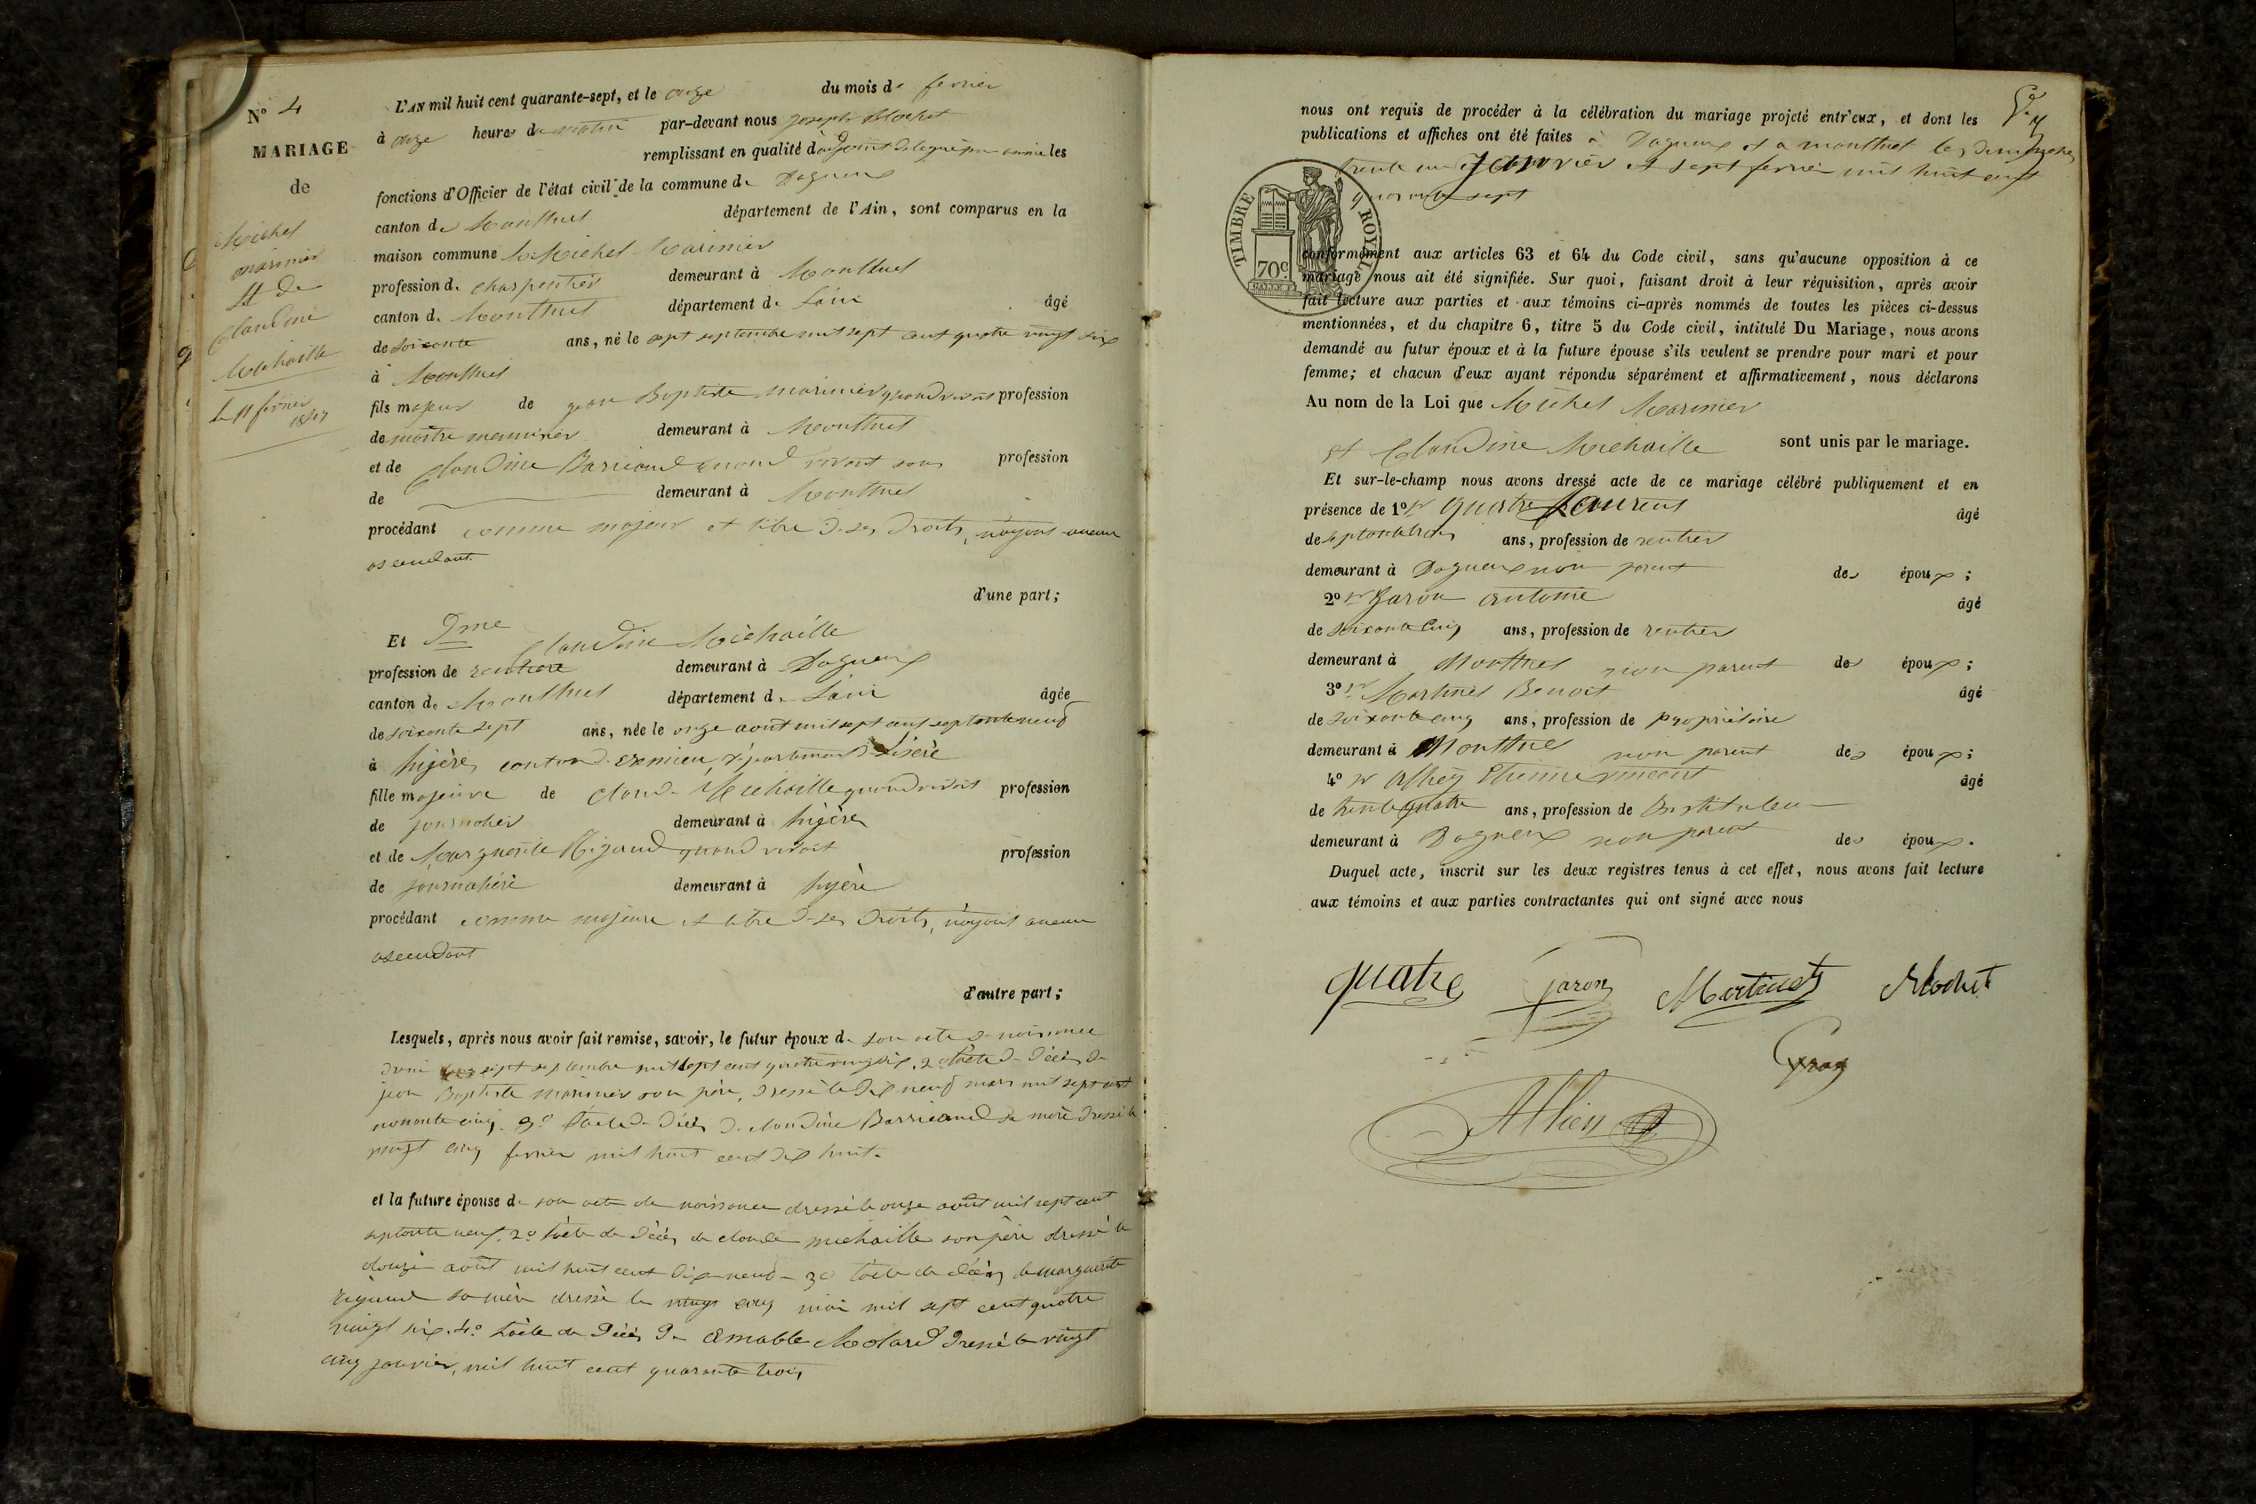 N° 4
MARIAGE
de
Michel
marinier
et de
Claudine
Michaille
Le 11 février
1847
L'AN mil huit cent quarante-sept, et le onze du mois de fevrier
à onze heures du matin par-devant nous joseph Blochet
remplissant en qualité d'adjoint délégué les
fonctions d'Officier de l'état civil de la commune de Dagneux
canton de Montluel département de l'Ain, sont comparus en la
maison commune Michel Marinier
profession de charpentier demeurant à Montluel
canton de Montluel département de L'ain âgé
de soixante ans, né le sept septembre mil sept cent quatre vingt six
à Montluel
fils majeur de jean Baptiste marinier quand vivait profession
de maitre menuisier demeurant à Montluel
et de Claudine Barricand quand vivait sans profession
de demeurant à Montluel
procédant comme majeur et libre de ses droits, n'ayant aucun
ascendant
d'une part;
Et Dme Claudine Michaille
profession de rentiere demeurant à Dagneux
canton de Montluel département de L'ain âgée
de soixante sept ans, née le onze aout mil sept cent septante neuf
à hyères canton de cremieu, département de L'isère
fille majeure de claude Michaille quand vivait profession
de journalier demeurant à hyères
et de Marguerite Rigaud quand vivait profession
de journalière demeurant à hyère
procédant comme majeure et libre de ses droits, n'ayant aucun
ascendant
d'autre part;
Lesquels, après nous avoir fait remise, savoir, le futur époux de son acte de naissance
sept septembre mil sept cent quatre vingt six, 2° l'acte de décès de
jean Baptiste marinier son père, dressé le dix neuf mars mil sept cent
nonante cinq. 3° l'acte de décès de claudine Barricand sa mère dressé le
vingt cinq fevrier mil huit cent dix huit.
et la future épouse de son acte de naissance dressé le onze août mil sept cent
septante neuf. 2° l'acte de décès de claude michaille son père dressé le
douze août mil huit cent dix neuf - 3° l'acte de décès de marguerite
rigaud sa mère dressé le vingt cinq mai mil sept cent quatre
vingt six. 4° l'acte de décès de amable Molard dressé le vingt
cinq janvier, mil huit cent quarante trois
nous ont requis de procéder à la célébration du mariage projeté entr'eux, et dont les
publications et affiches ont été faites à Dagneux et a montluel les dimanches
trente un janvier et sept fevrier mil huit cent
quarante sept
TIMBRE ROYAL
70c.
conformément aux articles 63 et 64 du Code civil, sans qu'aucune opposition à ce
mariage nous ait été signifiée. Sur quoi, faisant droit à leur réquisition, après avoir
fait lecture aux parties et aux témoins ci-après nommés de toutes les pièces ci-dessus
mentionnées, et du chapitre 6, titre 5 du Code civil, intitulé Du Mariage, nous avons
demandé au futur époux et à la future épouse s'ils veulent se prendre pour mari et pour
femme; et chacun d'eux ayant répondu séparément et affirmativement, nous déclarons
Au nom de la Loi que Michel Marinier
et Claudine Michaille sont unis par le mariage.
Et sur-le-champ nous avons dressé acte de ce mariage célébré publiquement et en
présence de 1° sr quatre Laurent âgé
de septante trois ans, profession de rentier
demeurant à Dagneux non parent des époux;
2° sr garon antoine âgé
de soixante cinq ans, profession de rentier
demeurant à Montluel non parent des époux;
3° sr Martinet Benoit âgé
de soixante cinq ans, profession de propriétaire
demeurant à Montluel non parent des époux;
4° sr Etienne vincent âgé
de trente quatre ans, profession de instituteur
demeurant à Dagneux non parent des époux.
Duquel acte, inscrit sur les deux registres tenus à cet effet, nous avons fait lecture
aux témoins et aux parties contractantes qui ont signé avec nous
quatre garon Martinet Blochet